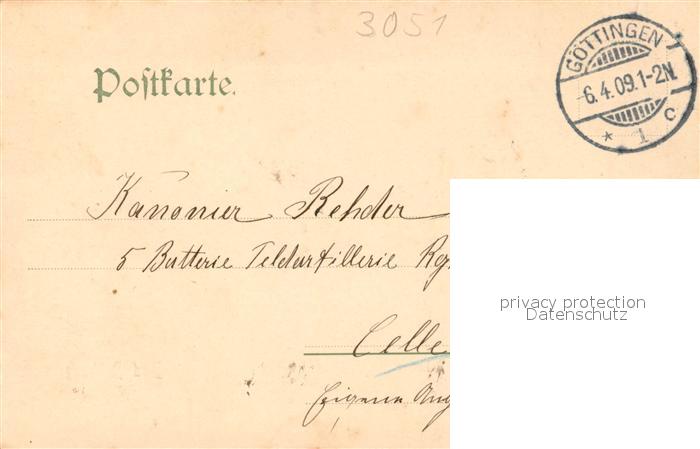 3051
GÖTTINGEN
6.4.09.1-2N.
* 1 c
Postkarte.
Kanonier Rehder
5 Batterie Feldartillerie Rg
privacy protection
Datenschutz
Celle
Eigene Ang